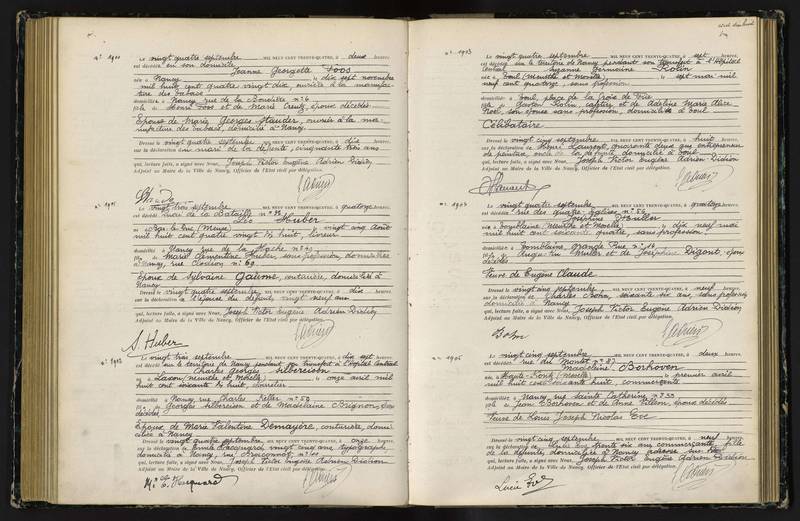 n° 1900
Le vingt quatre septembre MIL NEUF CENT TRENTE-QUATRE, à deux heures,
est décédé en son domicile
Jeanne Georgette Voos
née à Nancy le dix sept novembre
mil huit cent quatre vingt dix, ouvrière à la manufac-
ture des tabacs
domiciliée à Nancy rue de la n° 6
fille de Henri Voos et de Marie Creutz, époux décédés
Epouse de Marie Georges Stauder, ouvrier à la ma-
nufacture des tabacs, domicilié à Nancy.
Dressé le vingt quatre septembre MIL NEUF CENT TRENTE-QUATRE, à dix heures,
sur la déclaration du mari de la défunte, cinquante trois ans
qui, lecture faite, a signé avec Nous, Joseph Victor Eugène Adrien Didion
Adjoint au Maire de la Ville de Nancy, Officier de l'Etat civil par délégation.
n° 1901
Le vingt trois septembre MIL NEUF CENT TRENTE-QUATRE, à quatorze heures,
est décédé Quai de la Bataille n° 39
Léo Huber
né à (Meuse) le vingt août
mil huit cent quatre vingt huit, livreur
domicilié à Nancy rue de la Hache n° 49
fils de Marie Clémentine Huber, sans profession, domiciliée
à Nancy, rue Clodion n° 69.
Epoux de Sylvaine Gaûme, couturière, domiciliée à
Nancy
Dressé le vingt quatre septembre MIL NEUF CENT TRENTE-QUATRE, à dix heures,
sur la déclaration de l'épouse du défunt, vingt neuf ans
qui, lecture faite, a signé avec Nous, Joseph Victor Eugène Adrien Didion
Adjoint au Maire de la Ville de Nancy, Officier de l'Etat civil par délégation.
S. Huber
n° 1902
Le vingt trois septembre MIL NEUF CENT TRENTE-QUATRE, à dix sept heures,
est décédé sur le territoire de Nancy pendant son transfert à l'Hôpital Central
Charles Georges Silbereison
né à Laxou (Meurthe et Moselle) le onze avril mil
huit cent soixante huit, chapelier
domicilié à Nancy, rue Charles Keller n° 50
fils de Georges Silbereison et de Madeleine Brignon, époux
décédés.
Epoux de Marie Valentine Demayère, couturière, domi-
ciliée à Nancy
Dressé le vingt quatre septembre MIL NEUF CENT TRENTE-QUATRE, à onze heures,
sur la déclaration de Emile Hacquard, vingt cinq ans, typographe
domicilié à Nancy, rue
qui, lecture faite, a signé avec Nous, Joseph Victor Eugène Adrien Didion
Adjoint au Maire de la Ville de Nancy, Officier de l'Etat civil par délégation.
Hacquard
n° 1903
Le vingt quatre septembre MIL NEUF CENT TRENTE-QUATRE, à sept heures,
est décédée sur le territoire de Nancy pendant son transfert à l'Hôpital
Central Suzanne Germaine Rolin
née à Toul (Meurthe et Moselle) le sept mai mil
neuf cent quatorze, sans profession
domiciliée à Toul, place de la Croix de
fille de Gaston Rolin, et de Adeline Marie Alice
Noël, son épouse sans profession, domiciliés à Toul
Célibataire.
Dressé le vingt cinq septembre MIL NEUF CENT TRENTE-QUATRE, à huit heures,
sur la déclaration de Henri Laurent, quarante deux ans, entrepreneur
de peinture, oncle de la défunte, domicilié à Toul
qui, lecture faite, a signé avec Nous, Joseph Victor Eugène Adrien Didion
Adjoint au Maire de la Ville de Nancy, Officier de l'Etat civil par délégation.
Le vingt quatre septembre MIL NEUF CENT TRENTE-QUATRE, à quatorze heures,
est décédée rue des quatre églises n° 56
Joséphine Muller
née à Domblaine (Meurthe et Moselle) le dix neuf mai
mil huit cent soixante quatre, sans profession
domiciliée à Jomblaine Grande Rue n° 16
fille de Augustin Muller et de Joséphine Digont, époux
décédés
Veuve de Eugène Claude
Dressé le vingt cinq septembre MIL NEUF CENT TRENTE-QUATRE, à neuf heures,
sur la déclaration de Charles Bohn, soixante six ans, sans profession
domicilié à Nancy
qui, lecture faite, a signé avec Nous, Joseph Victor Eugène Adrien Didion
Adjoint au Maire de la Ville de Nancy, Officier de l'Etat civil par délégation.
Bohn
n° 1905
Le vingt cinq septembre MIL NEUF CENT TRENTE-QUATRE, à deux heures,
est décédée rue du Montet n° 87
Madeleine Borhoven
née à Haute-Kontz (Moselle) le premier avril
mil huit cent soixante huit, commerçante
domiciliée à Nancy, rue Sainte Catherine n° 33
fille de Jean Borhoven et de Anne Filleon, époux décédés
Veuve de Louis Joseph Nicolas Eve
Dressé le vingt cinq septembre MIL NEUF CENT TRENTE-QUATRE, à neuf heures,
sur la déclaration de Lucie Eve, trente six ans, commerçante, fille
de la défunte, domiciliée à Nancy
qui, lecture faite, a signé avec Nous, Joseph Victor Eugène Adrien Didion
Adjoint au Maire de la Ville de Nancy, Officier de l'Etat civil par délégation.
Lucie Eve